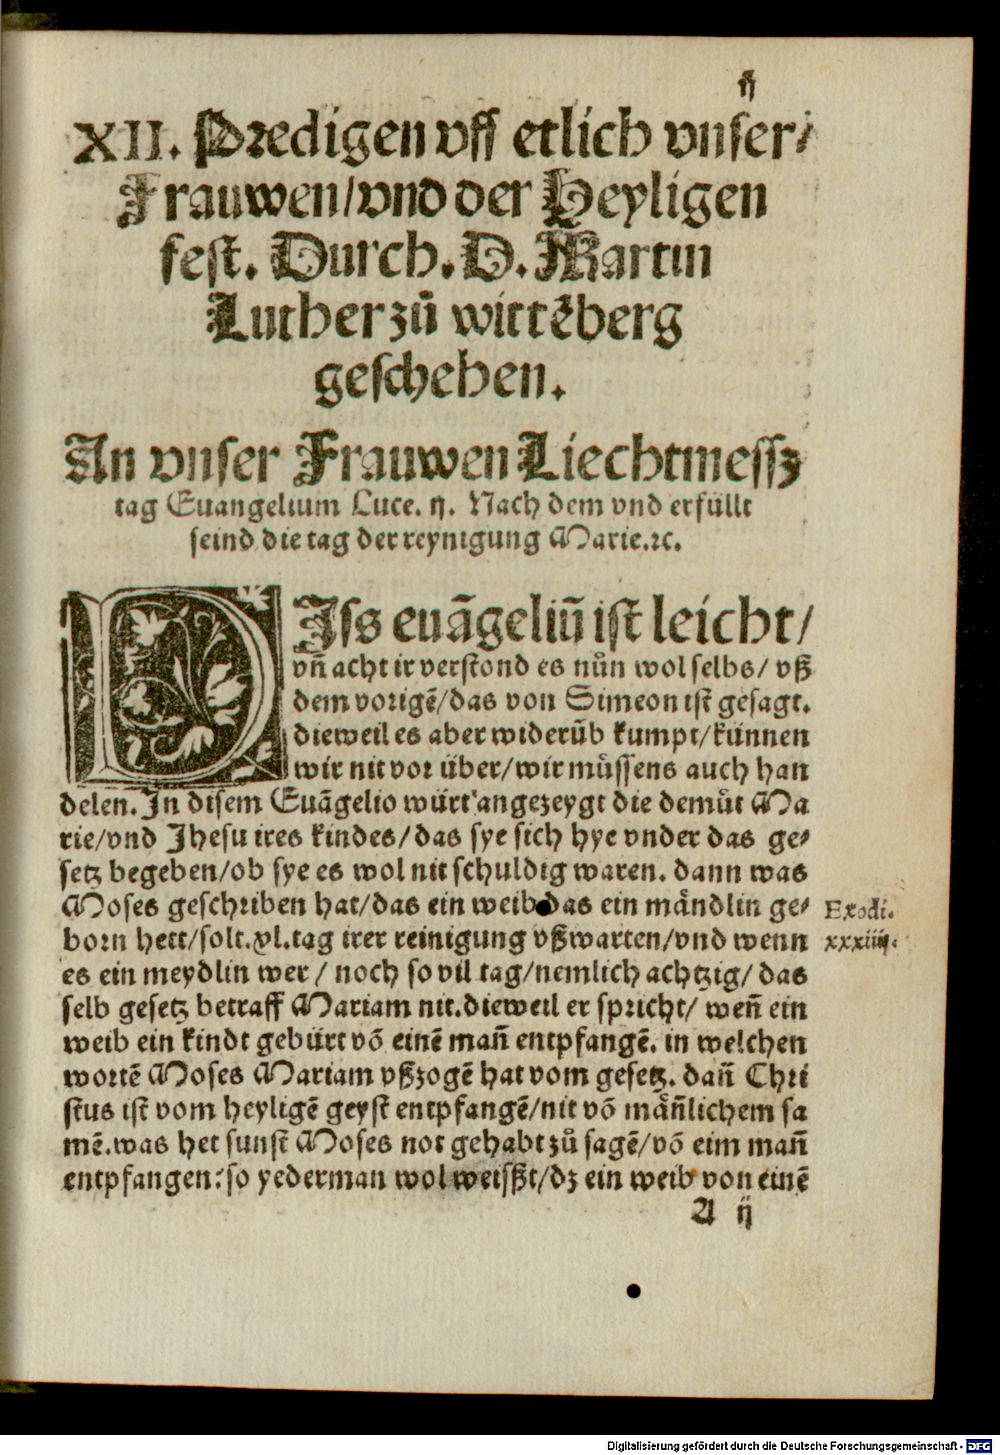 ij
XII. Predigen vff etlich vnser/
Frauwen/vnd der Heyligen
fest. Durch. D. Martin
Luther zů wittẽberg
geschehen.
An vnser Frauwen Liechtmessz
tag Euangelium Luce. ij. Nach dem vnd erfüllt
seind die tag der reynigung Marie.ꝛc.
DIss euãgeliũ ist leicht/
vñ acht ir verstond es nůn wol selbs/ vß
dem vorigẽ/das von Simeon ist gesagt.
dieweil es aber widerũb kumpt/künnen
wir nit vor über/wir müssens auch han
delen. In disem Euãgelio würt angezeygt die demůt Ma
rie/vnd Jhesu ires kindes/das sye sich hye vnder das ge⸗
setz begeben/ob sye es wol nit schuldig waren. dann was
Moses geschriben hat/das ein weib das ein mändlin ge⸗
born hett/solt.xl.tag irer reinigung vßwarten/vnd wenn
es ein meydlin wer/ noch so vil tag/nemlich achtzig/ das
selb gesetz betraff Mariam nit.dieweil er spricht/ weñ ein
weib ein kindt gebürt võ einẽ mañ entpfangẽ. in welchen
wortẽ Moses Mariam vßzogẽ hat vom gesetz. dañ Chri
stus ist vom heyligẽ geyst entpfangẽ/nit võ mäñlichem sa
mẽ.was het sunst Moses not gehabt zů sagẽ/võ eim mañ
entpfangen: so yederman wol weißt/dz ein weib von einẽ
Exodi.
xxxiiij.
A ij
Digitalisierung gefördert durch die Deutsche Forschungsgemeinschaft - DFG